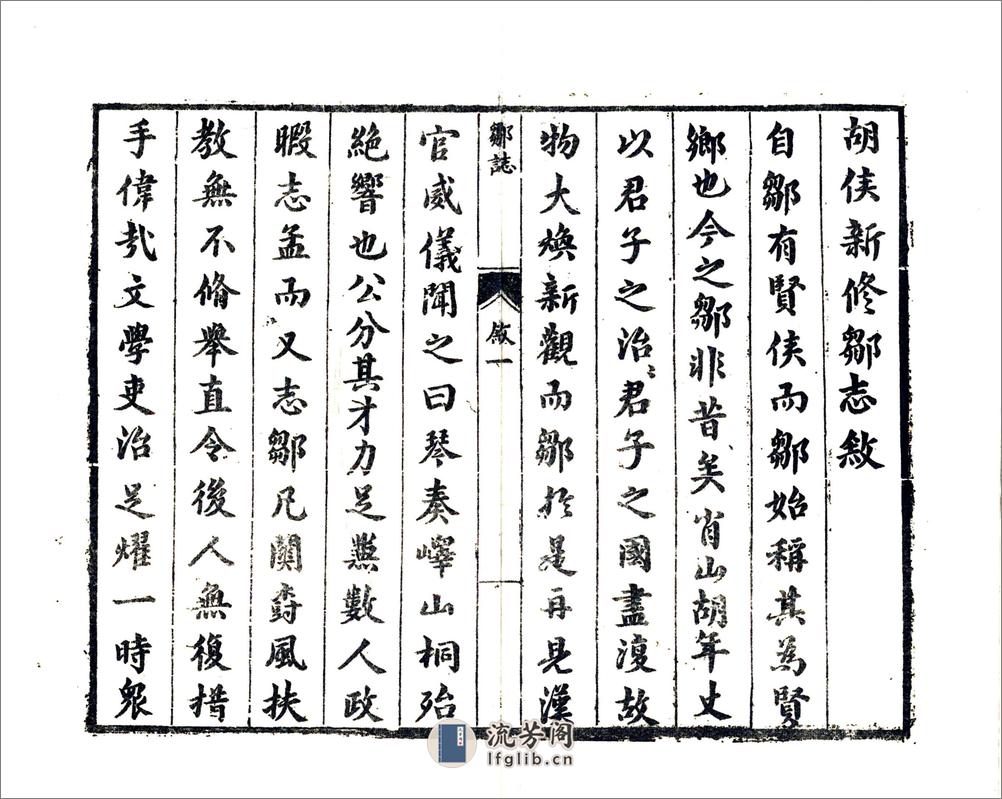 胡侯新修鄒志敘
自鄒有賢侯而鄒始稱其為賢
鄉也今之鄒非昔矣肖山胡年丈
以君子之治治君子之國盡復故
物大煥新觀而鄒於是再見漢
鄒誌
敘一
官威儀聞之曰琴奏嶧山桐殆
絕響也公分其才力足無數人政
暇志孟而又志鄒凡關
風扶
教無不脩舉直令後人無復措
手偉哉文學吏治足燿一時眾
流芳阁
lfglib.cn